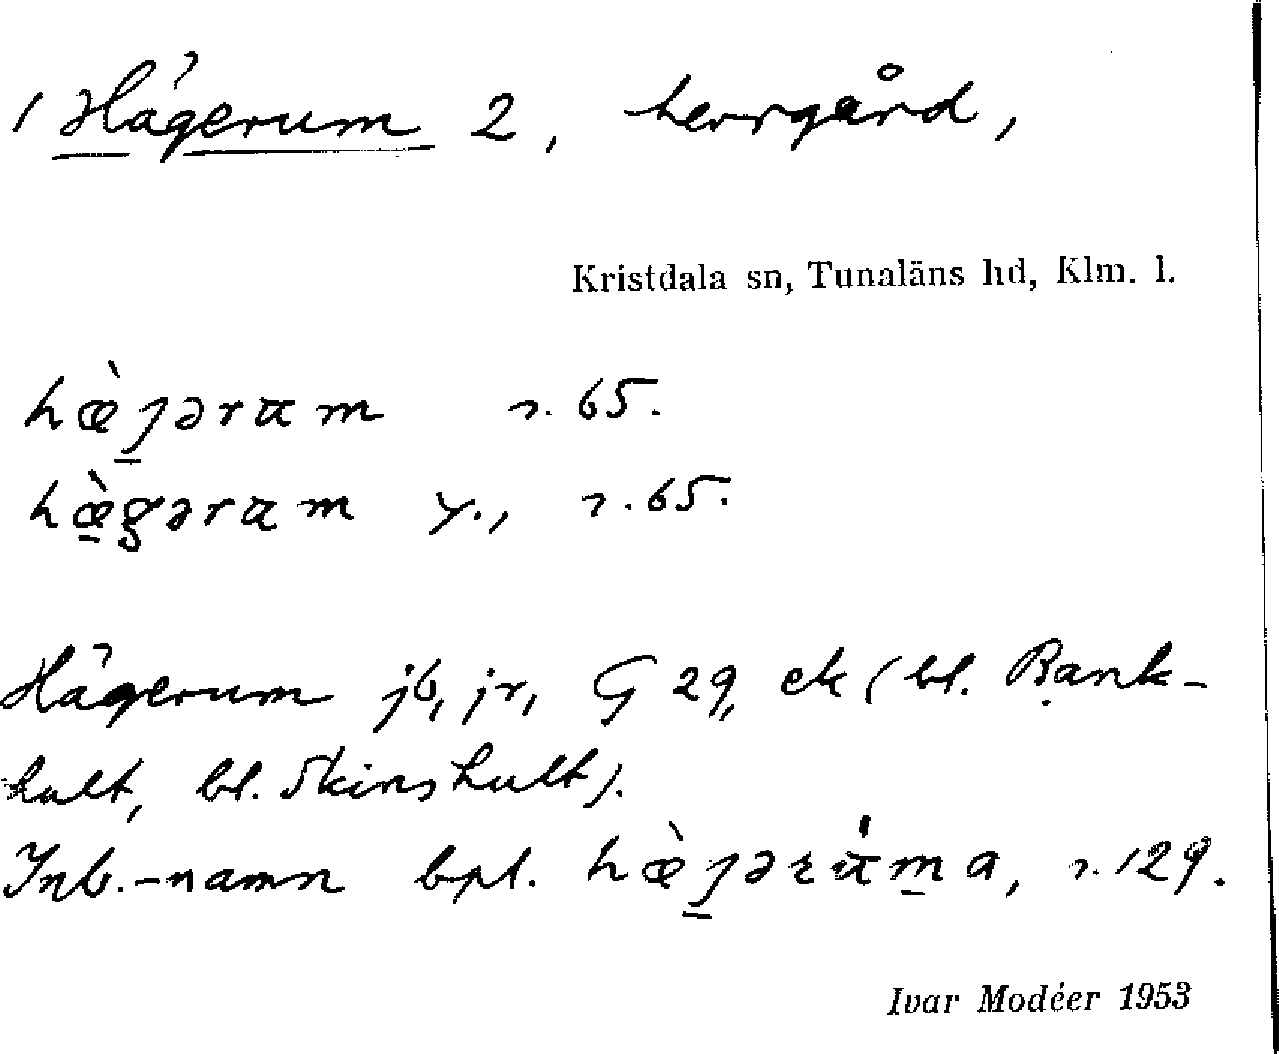 1 Hägerum 2, herrgård,
Kristdala sn, Tunaläns hd, Klm. l.
hæ̀ȷəram r. 65.
hæ̀gəram y., r. 65.
Hägerum jb, jr, G 29, ek (bl. Bank-
hult, bl. Skinshult).
Inb.-namn bpl. hæ̀ȷərám̱a, r. 129.
Ivar Modéer 1953